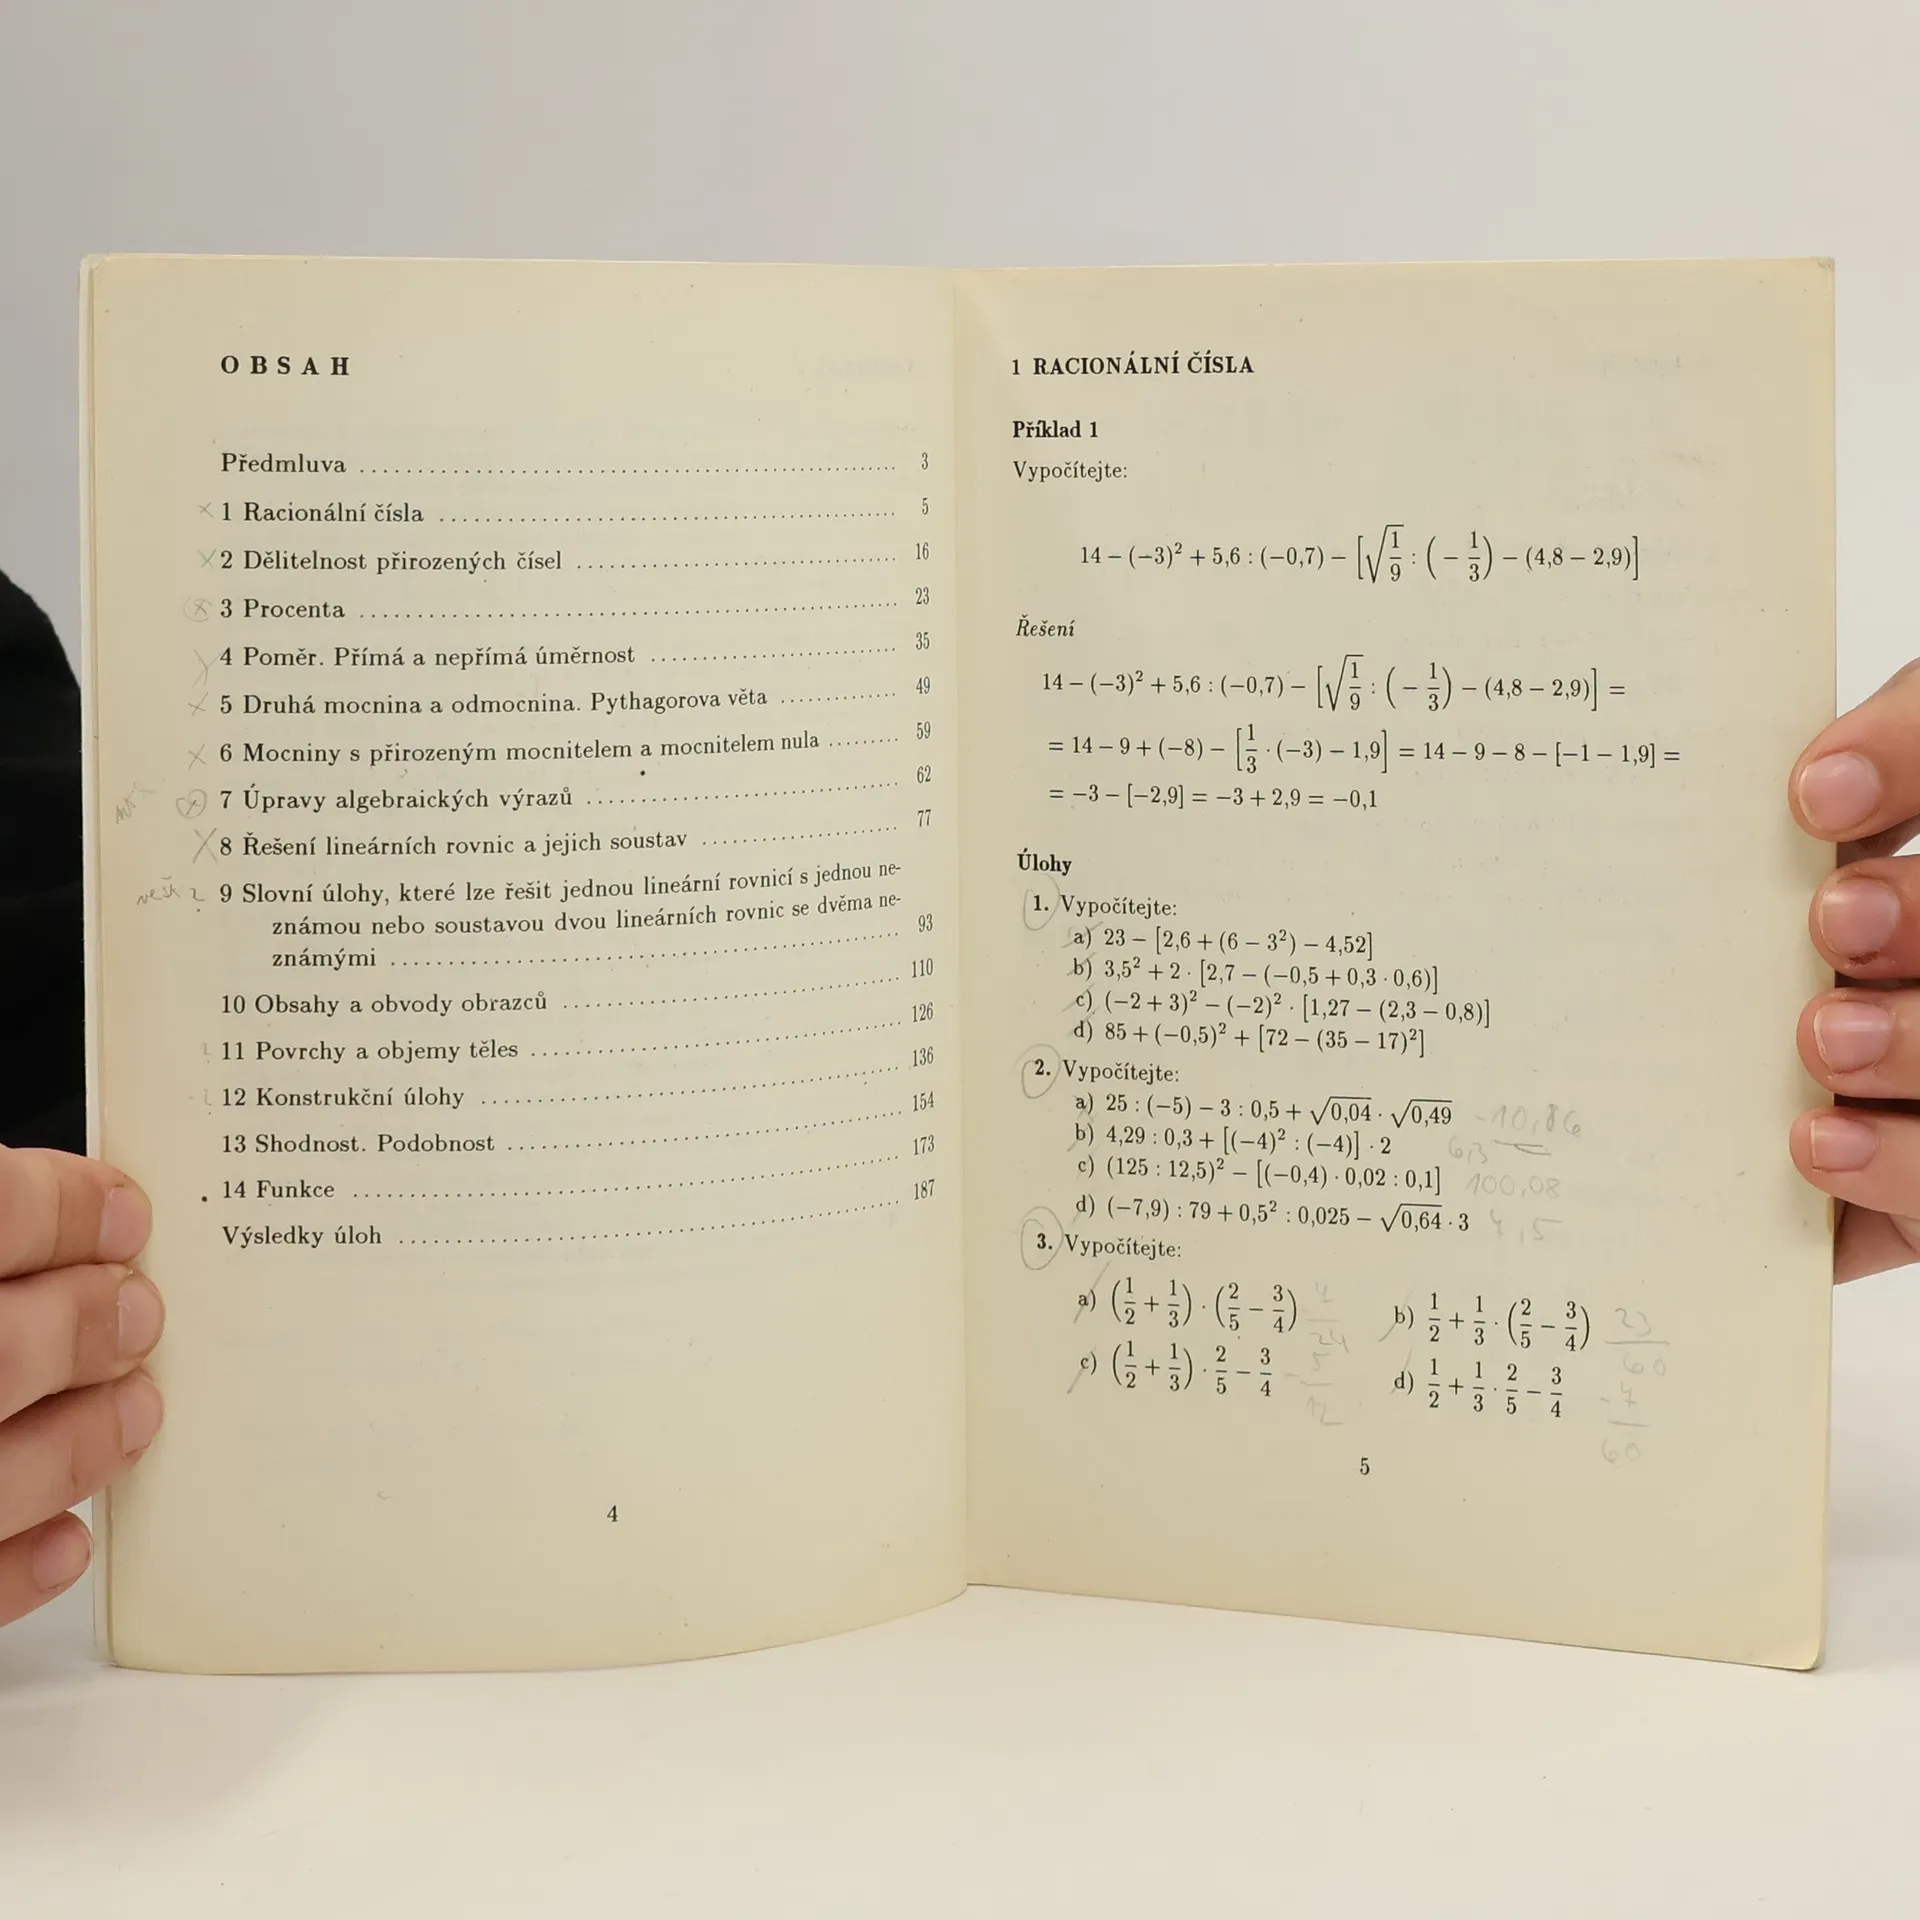 OBSAH
Předmluva ........ 3
1 Racionální čísla ........ 5
2 Dělitelnost přirozených čísel ........ 16
3 Procenta ........ 23
4 Poměr. Přímá a nepřímá úměrnost ........ 35
5 Druhá mocnina a odmocnina. Pythagorova věta ........ 49
6 Mocniny s přirozeným mocnitelem a mocnitelem nula ........ 59
7 Úpravy algebraických výrazů ........ 62
8 Řešení lineárních rovnic a jejich soustav ........ 77
9 Slovní úlohy, které lze řešit jednou lineární rovnicí s jednou ne-
známou nebo soustavou dvou lineárních rovnic se dvěma ne-
známými ........ 93
10 Obsahy a obvody obrazců ........ 110
11 Povrchy a objemy těles ........ 126
12 Konstrukční úlohy ........ 136
13 Shodnost. Podobnost ........ 154
14 Funkce ........ 173
Výsledky úloh ........ 187
4
1 RACIONÁLNÍ ČÍSLA
Příklad 1
Vypočítejte:
14 − (−3)² + 5,6 : (−0,7) − [√(1/9) : (−1/3) − (4,8 − 2,9)]
Řešení
14 − (−3)² + 5,6 : (−0,7) − [√(1/9) : (−1/3) − (4,8 − 2,9)] =
= 14 − 9 + (−8) − [1/3 · (−3) − 1,9] = 14 − 9 − 8 − [−1 − 1,9] =
= −3 − [−2,9] = −3 + 2,9 = −0,1
Úlohy
1. Vypočítejte:
a) 23 − [2,6 + (6 − 3²) − 4,52]
b) 3,5² + 2 · [2,7 − (−0,5 + 0,3 · 0,6)]
c) (−2 + 3)² − (−2)² · [1,27 − (2,3 − 0,8)]
d) 85 + (−0,5)² + [72 − (35 − 17)²]
2. Vypočítejte:
a) 25 : (−5) − 3 : 0,5 + √0,04 · √0,49 −10,86
b) 4,29 : 0,3 + [(−4)² : (−4)] · 2 6,3
c) (125 : 12,5)² − [(−0,4) · 0,02 : 0,1] 100,08
d) (−7,9) : 79 + 0,5² : 0,025 − √0,64 · 3
3. Vypočítejte:
a) (1/2 + 1/3) · (2/5 − 3/4) b) 1/2 + 1/3 · (2/5 − 3/4) 23/60
c) (1/2 + 1/3) · 2/5 − 3/4 d) 1/2 + 1/3 · 2/5 − 3/4 −7/60
5